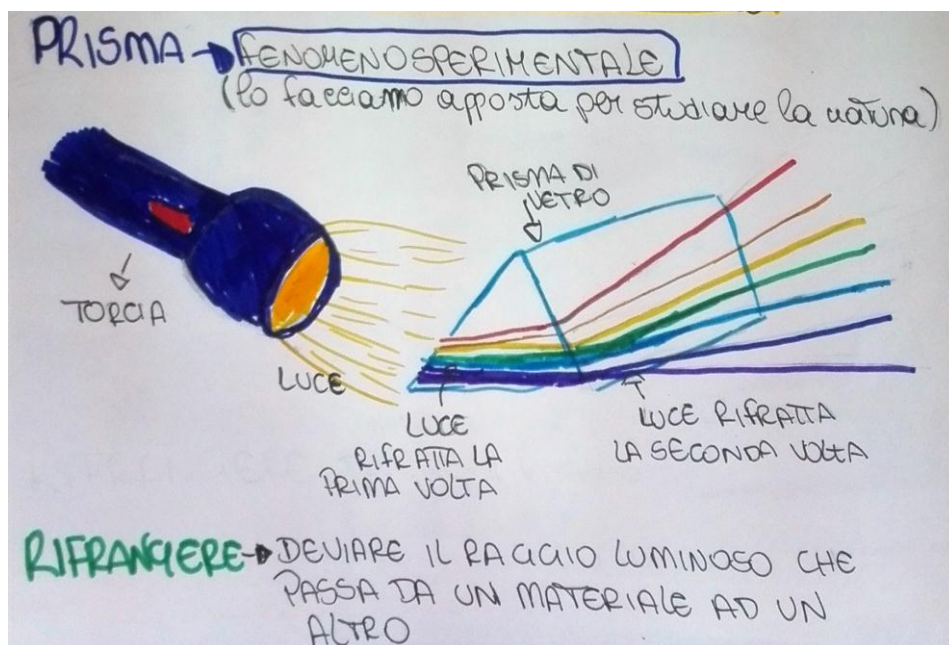 PRISMA → FENOMENO SPERIMENTALE
(lo facciamo apposta per studiare la natura)
PRISMA DI
VETRO
TORCIA
LUCE
LUCE
RIFRATTA LA
PRIMA VOLTA
LUCE RIFRATTA
LA SECONDA VOLTA
RIFRANGERE → DEVIARE IL RAGGIO LUMINOSO CHE
PASSA DA UN MATERIALE AD UN
ALTRO